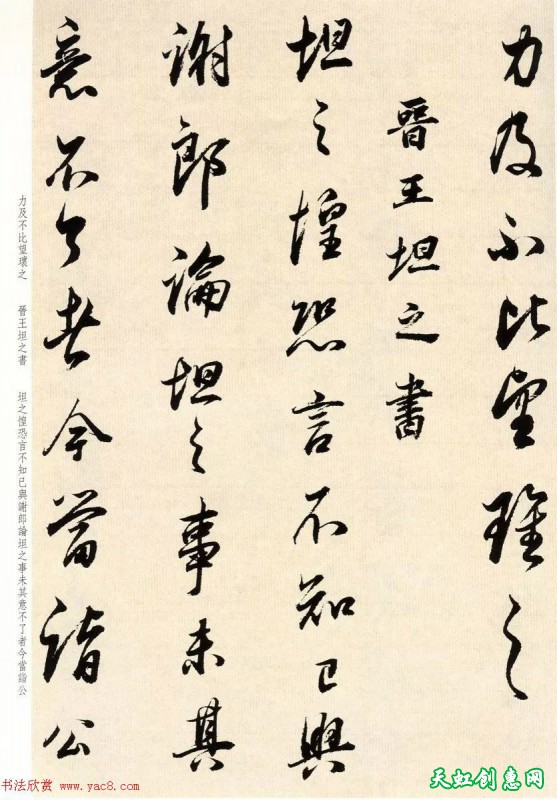 力及不比望瓌之
晉王坦之書
坦之惶恐言不知已與
謝郎論坦之事未其
意不了者今當詣公
力及不比望瓌之 晉王坦之書 坦之惶恐言不知已與謝郎論坦之事未其意不了者今當詣公
书法欣赏 www.yac8.com
天虹创惠网